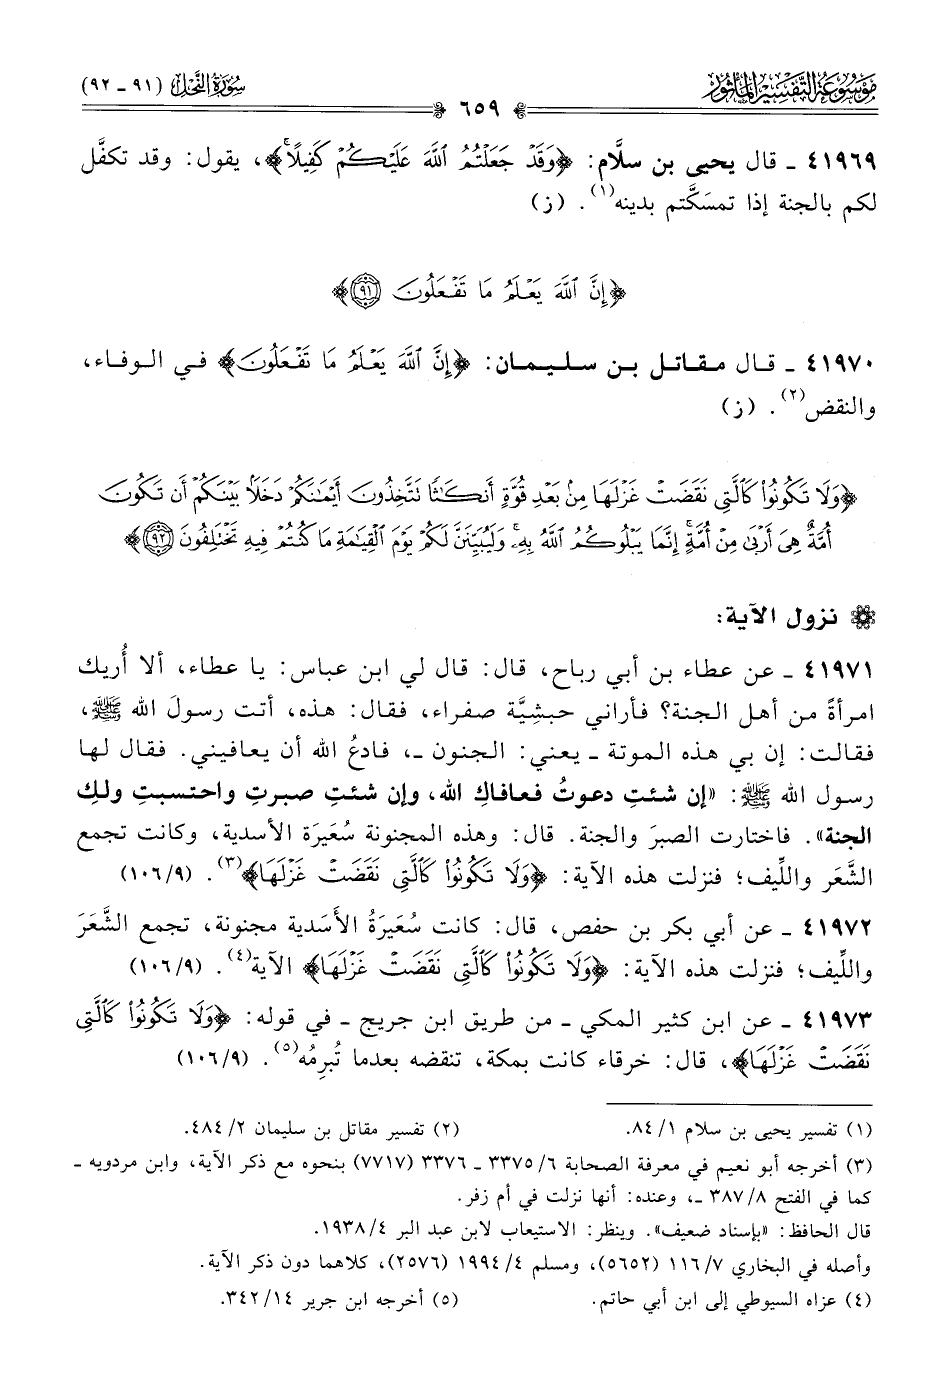 مَوْسُوعَةُ التَّفْسِيرِ المَأْثُورِ
سُورَةُ النَّحْلِ (٩١ - ٩٢)
٦٥٩
٤١٩٦٩ - قال يحيى بن سلَّام: ﴿وَقَدْ جَعَلْتُمُ ٱللَّهَ عَلَيْكُمْ كَفِيلًا﴾، يقول: وقد تكفَّل
لكم بالجنة إذا تمسَكَّتم بدينه(١). (ز)
﴿إِنَّ ٱللَّهَ يَعْلَمُ مَا تَفْعَلُونَ ٩١﴾
٤١٩٧٠ - قال مقاتل بن سليمان: ﴿إِنَّ ٱللَّهَ يَعْلَمُ مَا تَفْعَلُونَ﴾ في الوفاء،
والنقض(٢). (ز)
﴿وَلَا تَكُونُوا۟ كَٱلَّتِى نَقَضَتْ غَزْلَهَا مِنۢ بَعْدِ قُوَّةٍ أَنكَٰثًا تَتَّخِذُونَ أَيْمَٰنَكُمْ دَخَلًۢا بَيْنَكُمْ أَن تَكُونَ
أُمَّةٌ هِىَ أَرْبَىٰ مِنْ أُمَّةٍ ۚ إِنَّمَا يَبْلُوكُمُ ٱللَّهُ بِهِۦ ۚ وَلَيُبَيِّنَنَّ لَكُمْ يَوْمَ ٱلْقِيَٰمَةِ مَا كُنتُمْ فِيهِ تَخْتَلِفُونَ ٩٢﴾
نزول الآية:
٤١٩٧١ - عن عطاء بن أبي رباح، قال: قال لي ابن عباس: يا عطاء، ألا أُريك
امرأةً من أهل الجنة؟ فأراني حبشِيَّة صفراء، فقال: هذه، أتت رسولَ الله ﷺ،
فقالت: إن بي هذه الموتة - يعني: الجنون -، فادعُ الله أن يعافيني. فقال لها
رسول الله ﷺ: «إن شئتِ دعوتُ فعافاكِ الله، وإن شئتِ صبرتِ واحتسبتِ ولكِ
الجنة». فاختارت الصبرَ والجنة. قال: وهذه المجنونة سُعَيرَة الأسدية، وكانت تجمع
الشَّعَر واللِّيف؛ فنزلت هذه الآية: ﴿وَلَا تَكُونُوا۟ كَٱلَّتِى نَقَضَتْ غَزْلَهَا﴾(٣). (١٠٦/٩)
٤١٩٧٢ - عن أبي بكر بن حفص، قال: كانت سُعَيرَةُ الأَسَدية مجنونة، تجمع الشَّعَرَ
واللِّيف؛ فنزلت هذه الآية: ﴿وَلَا تَكُونُوا۟ كَٱلَّتِى نَقَضَتْ غَزْلَهَا﴾ الآية(٤). (١٠٦/٩)
٤١٩٧٣ - عن ابن كثير المكي - من طريق ابن جريج - في قوله: ﴿وَلَا تَكُونُوا۟ كَٱلَّتِى
نَقَضَتْ غَزْلَهَا﴾، قال: خرقاء كانت بمكة، تنقضه بعدما تُبرِمُه(٥). (١٠٦/٩)
(١) تفسير يحيى بن سلام ١/ ٨٤. (٢) تفسير مقاتل بن سليمان ٢/ ٤٨٤.
(٣) أخرجه أبو نعيم في معرفة الصحابة ٦/ ٣٣٧٥ - ٣٣٧٦ (٧٧١٧) بنحوه مع ذكر الآية، وابن مردويه -
كما في الفتح ٨/ ٣٨٧ -، وعنده: أنها نزلت في أم زفر.
قال الحافظ: «بإسناد ضعيف». وينظر: الاستيعاب لابن عبد البر ٤/ ١٩٣٨.
وأصله في البخاري ٧/ ١١٦ (٥٦٥٢)، ومسلم ٤/ ١٩٩٤ (٢٥٧٦)، كلاهما دون ذكر الآية.
(٤) عزاه السيوطي إلى ابن أبي حاتم. (٥) أخرجه ابن جرير ١٤/ ٣٤٢.